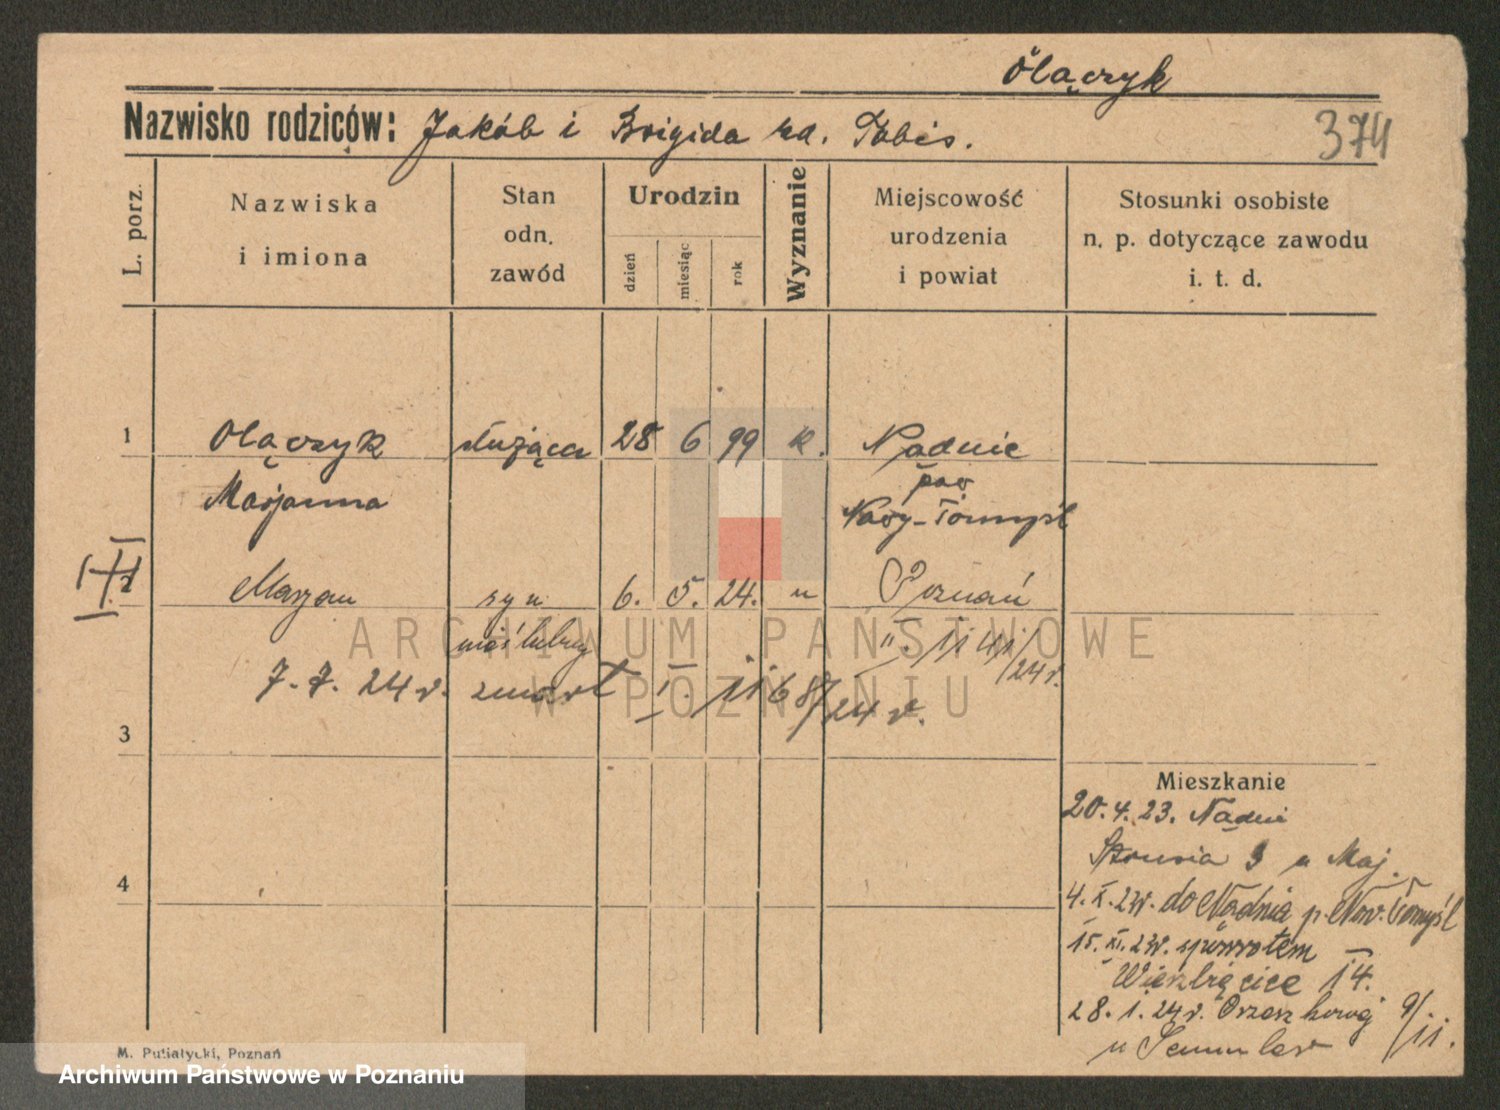 Olączyk
Nazwisko rodziców: Jakób i Brigida zd. Tobis.
374
L. porz.
Nazwiska
i imiona
Stan
odn.
zawód
Urodzin
dzień
miesiąc
rok
Wyznanie
Miejscowość
urodzenia
i powiat
Stosunki osobiste
n. p. dotyczące zawodu
i. t. d.
1 Olączyk służąca 28 6 99 k. Nądnie
Marjanna pow
Nowy-Tomyśl
2 Marjan syn 6. 5. 24. " Poznań
nieślubny II. 1141/24r.
7. 7. 24 r. zmarł I. 1168/24 r.
3
4
Mieszkanie
20. 4. 23. Nądni
3 u Maj.
4. X. 23r. do Nądnia p. Now. Tomyśl
15. XI. 23r. spowrotem
Wierzbięcice 14.
28. 1. 24r. Orzeszkowej 9/11.
u
M. Putiatycki, Poznań
ARCHIWUM PAŃSTWOWE
W POZNANIU
Archiwum Państwowe w Poznaniu